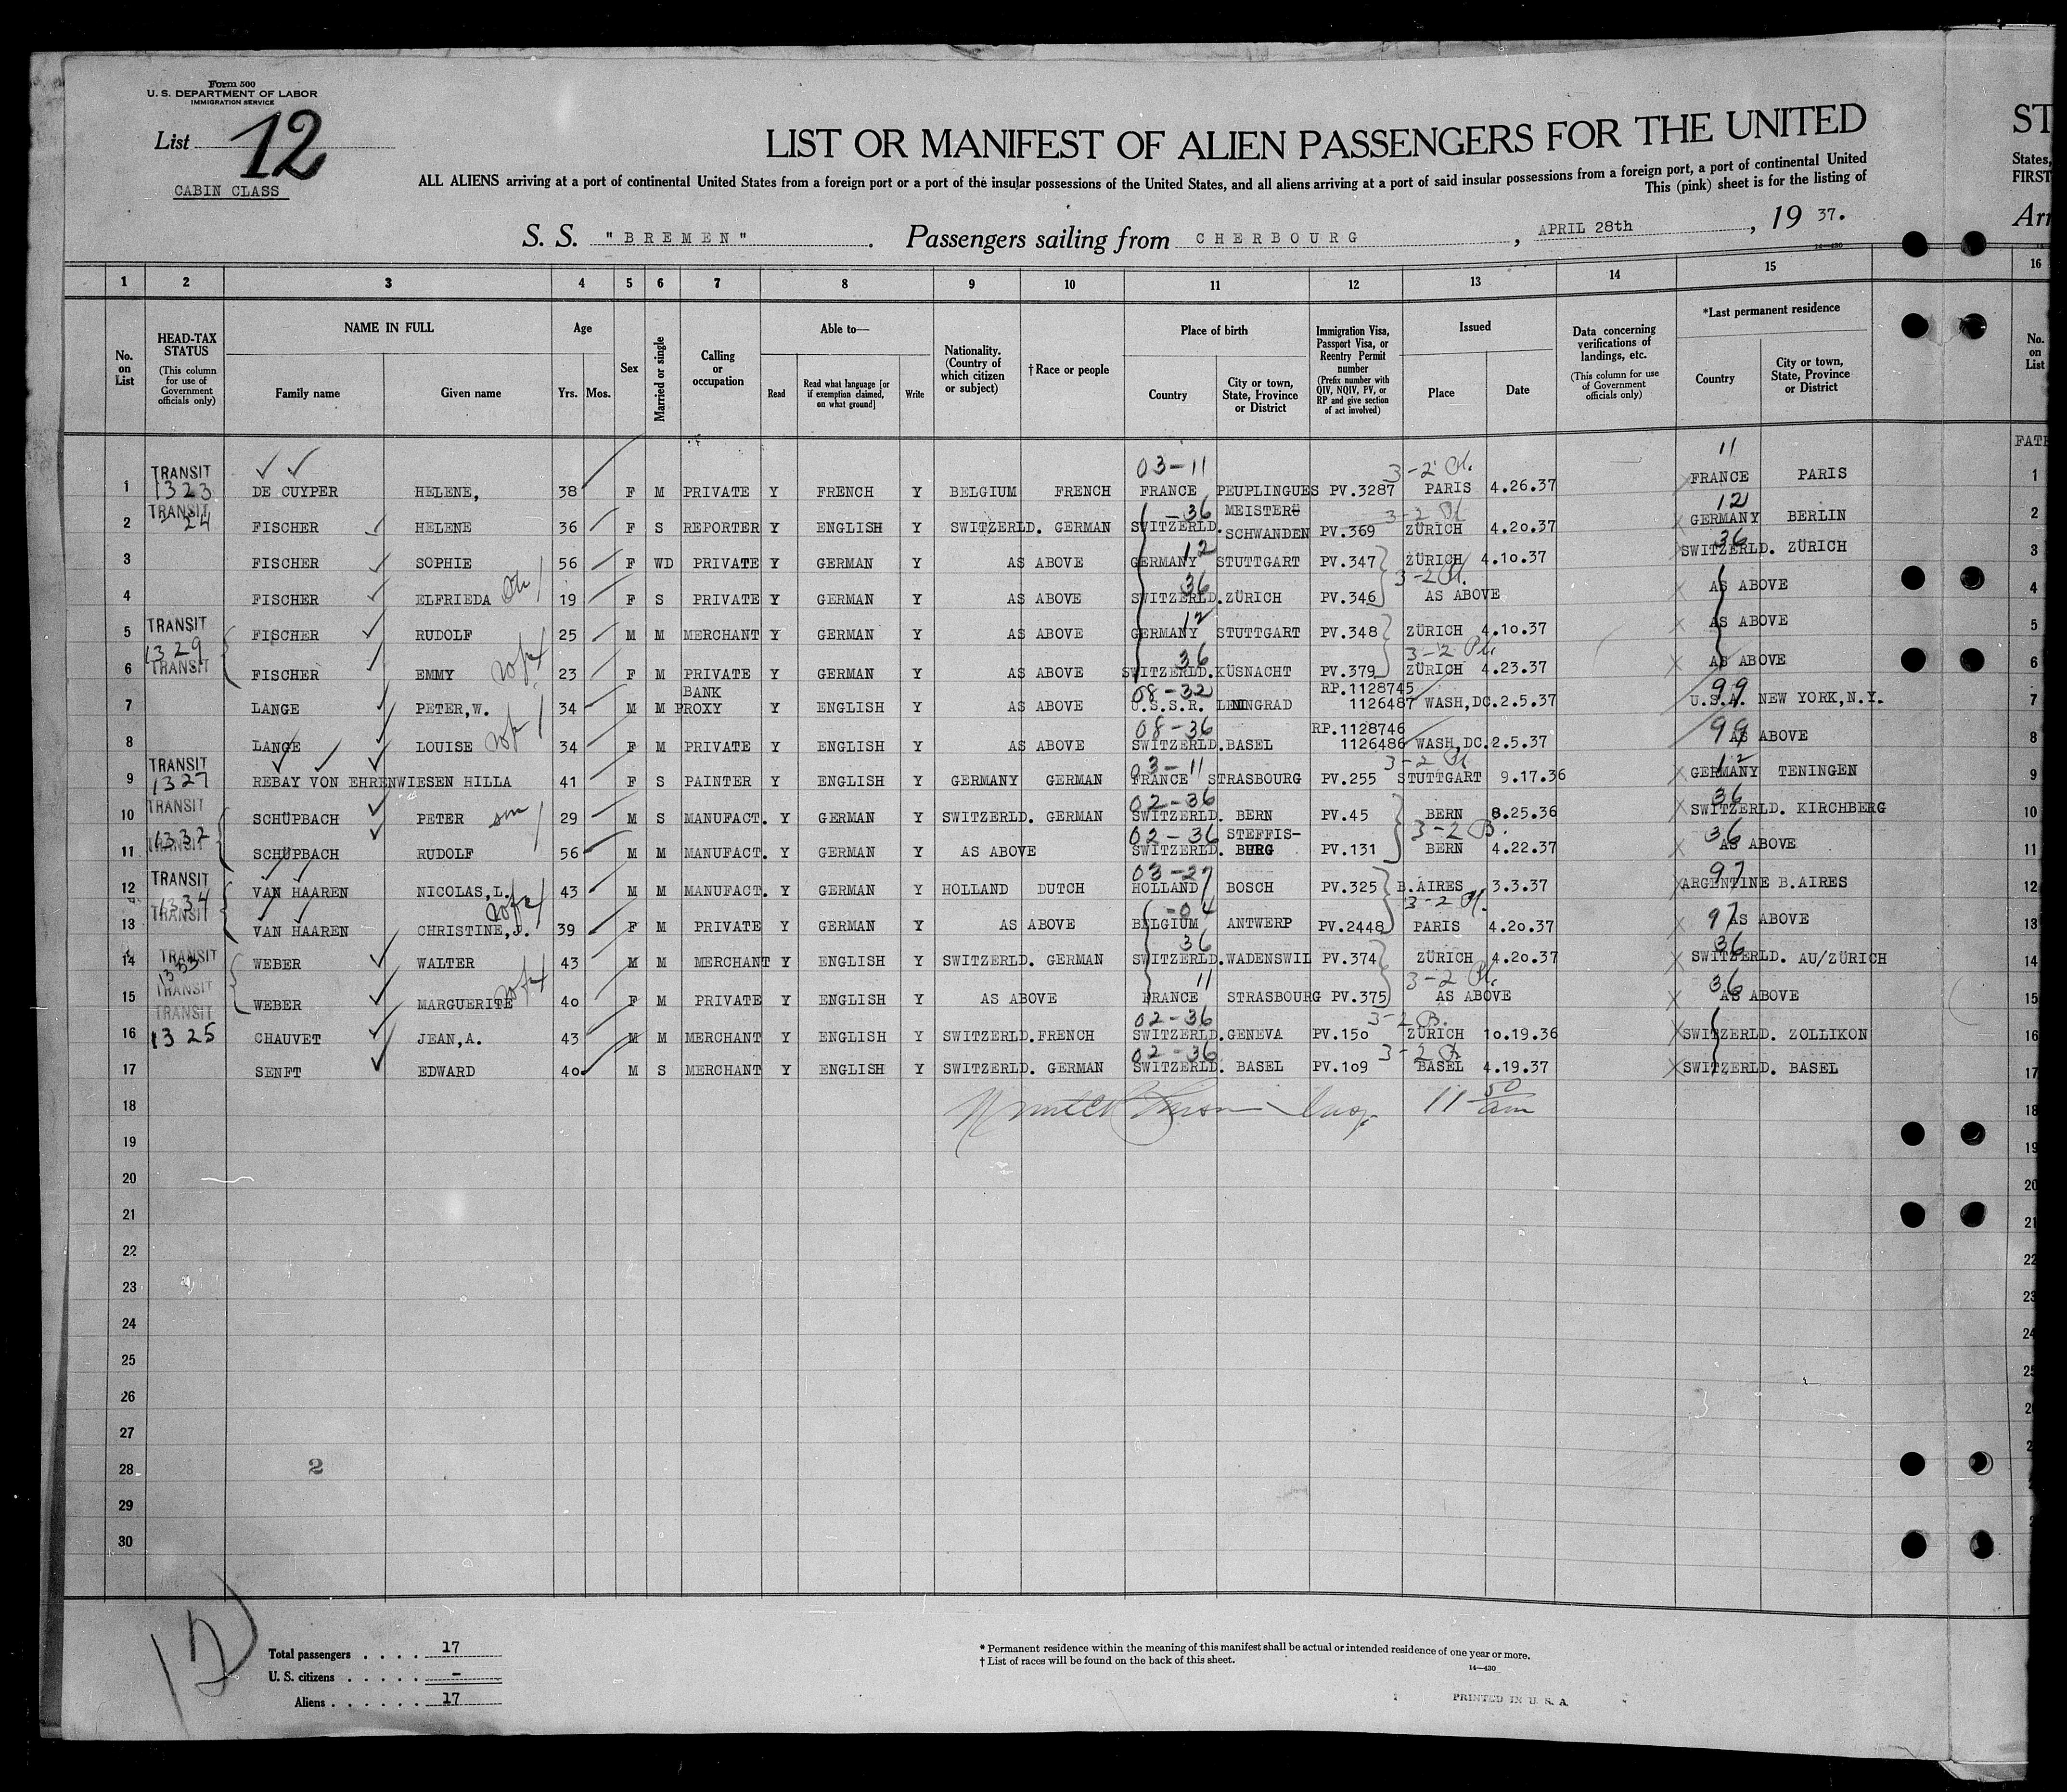 Form 500
U. S. DEPARTMENT OF LABOR
IMMIGRATION SERVICE
List 12
CABIN CLASS
LIST OR MANIFEST OF ALIEN PASSENGERS FOR THE UNITED
ST
ALL ALIENS arriving at a port of continental United States from a foreign port or a port of the insular possessions of the United States, and all aliens arriving at a port of said insular possessions from a foreign port, a port of continental United
States,
This (pink) sheet is for the listing of
FIRST
S. S. "BREMEN" . Passengers sailing from CHERBOURG , APRIL 28th , 19 37.
Arr
14—430
1 2 3 4 5 6 7 8 9 10 11 12 13 14 15 16
No. on List
HEAD-TAX STATUS
(This column for use of Government officials only)
NAME IN FULL
Family name
Given name
Age
Yrs. Mos.
Sex
Married or single
Calling or occupation
Able to—
Read
Read what language [or if exemption claimed, on what ground]
Write
Nationality. (Country of which citizen or subject)
†Race or people
Place of birth
Country
City or town, State, Province or District
Immigration Visa, Passport Visa, or Reentry Permit number
(Prefix number with QIV, NQIV, PV, or RP and give section of act involved)
Issued
Place
Date
Data concerning verifications of landings, etc.
(This column for use of Government officials only)
*Last permanent residence
Country
City or town, State, Province or District
No. on List
FATH
03-11 3-2 11
1 TRANSIT 1323 DE CUYPER HELENE, 38 F M PRIVATE Y FRENCH Y BELGIUM FRENCH FRANCE PEUPLINGUES PV.3287 PARIS 4.26.37 FRANCE PARIS 1
36 3-2 12
2 TRANSIT 24 FISCHER HELENE 36 F S REPORTER Y ENGLISH Y SWITZERLD. GERMAN SWITZERLD. MEISTER SCHWANDEN PV.369 ZÜRICH 4.20.37 GERMANY BERLIN 2
12 36
3 FISCHER SOPHIE 56 F WD PRIVATE Y GERMAN Y AS ABOVE GERMANY STUTTGART PV.347 ZÜRICH 4.10.37 SWITZERLD. ZÜRICH 3
36 3-2
4 FISCHER ELFRIEDA 19 F S PRIVATE Y GERMAN Y AS ABOVE SWITZERLD. ZÜRICH PV.346 AS ABOVE AS ABOVE 4
12
5 TRANSIT FISCHER RUDOLF 25 M M MERCHANT Y GERMAN Y AS ABOVE GERMANY STUTTGART PV.348 ZÜRICH 4.10.37 AS ABOVE 5
1329 36 3-2
6 TRANSIT FISCHER EMMY 23 F M PRIVATE Y GERMAN Y AS ABOVE SWITZERLD. KÜSNACHT PV.379 ZÜRICH 4.23.37 AS ABOVE 6
08-32 99
7 LANGE PETER,W. 34 M M BANK PROXY Y ENGLISH Y AS ABOVE U.S.S.R. LENINGRAD RP.1128745 1126487 WASH,DC. 2.5.37 U.S.A. NEW YORK,N.Y. 7
08-36 99
8 LANGE LOUISE 34 F M PRIVATE Y ENGLISH Y AS ABOVE SWITZERLD. BASEL RP.1128746 1126486 WASH,DC. 2.5.37 AS ABOVE 8
03-11 3-2 12
9 TRANSIT 1327 REBAY VON EHRENWIESEN HILLA 41 F S PAINTER Y ENGLISH Y GERMANY GERMAN FRANCE STRASBOURG PV.255 STUTTGART 9.17.36 GERMANY TENINGEN 9
02-36 36
10 TRANSIT SCHÜPBACH PETER 29 M S MANUFACT. Y GERMAN Y SWITZERLD. GERMAN SWITZERLD. BERN PV.45 BERN 8.25.36 SWITZERLD. KIRCHBERG 10
1332 02-36 3-2 B. 36
11 TRANSIT SCHÜPBACH RUDOLF 56 M M MANUFACT. Y GERMAN Y AS ABOVE SWITZERLD. STEFFIS-BURG PV.131 BERN 4.22.37 AS ABOVE 11
03-27 97
12 TRANSIT VAN HAAREN NICOLAS,L. 43 M M MANUFACT. Y GERMAN Y HOLLAND DUTCH HOLLAND BOSCH PV.325 B.AIRES 3.3.37 ARGENTINE B.AIRES 12
1334 -04 3-2 97
13 TRANSIT VAN HAAREN CHRISTINE,J. 39 F M PRIVATE Y GERMAN Y AS ABOVE BELGIUM ANTWERP PV.2448 PARIS 4.20.37 AS ABOVE 13
36 36
14 TRANSIT WEBER WALTER 43 M M MERCHANT Y ENGLISH Y SWITZERLD. GERMAN SWITZERLD. WADENSWIL PV.374 ZÜRICH 4.20.37 SWITZERLD. AU/ZÜRICH 14
11 3-2 36
15 TRANSIT WEBER MARGUERITE 40 F M PRIVATE Y ENGLISH Y AS ABOVE FRANCE STRASBOURG PV.375 AS ABOVE AS ABOVE 15
TRANSIT 02-36 3-2 B.
16 1325 CHAUVET JEAN,A. 43 M M MERCHANT Y ENGLISH Y SWITZERLD. FRENCH SWITZERLD. GENEVA PV.150 ZÜRICH 10.19.36 SWITZERLD. ZOLLIKON 16
02-36 3-2
17 SENFT EDWARD 40 M S MERCHANT Y ENGLISH Y SWITZERLD. GERMAN SWITZERLD. BASEL PV.109 BASEL 4.19.37 SWITZERLD. BASEL 17
18 11 50 am 18
19 19
20 20
21 21
22 22
23 23
24 24
25 25
26
27
28 2
29
30
12
Total passengers . . . . 17
U. S. citizens . . . . . –
Aliens . . . . . . 17
* Permanent residence within the meaning of this manifest shall be actual or intended residence of one year or more.
† List of races will be found on the back of this sheet.
14—430
PRINTED IN U. S. A.